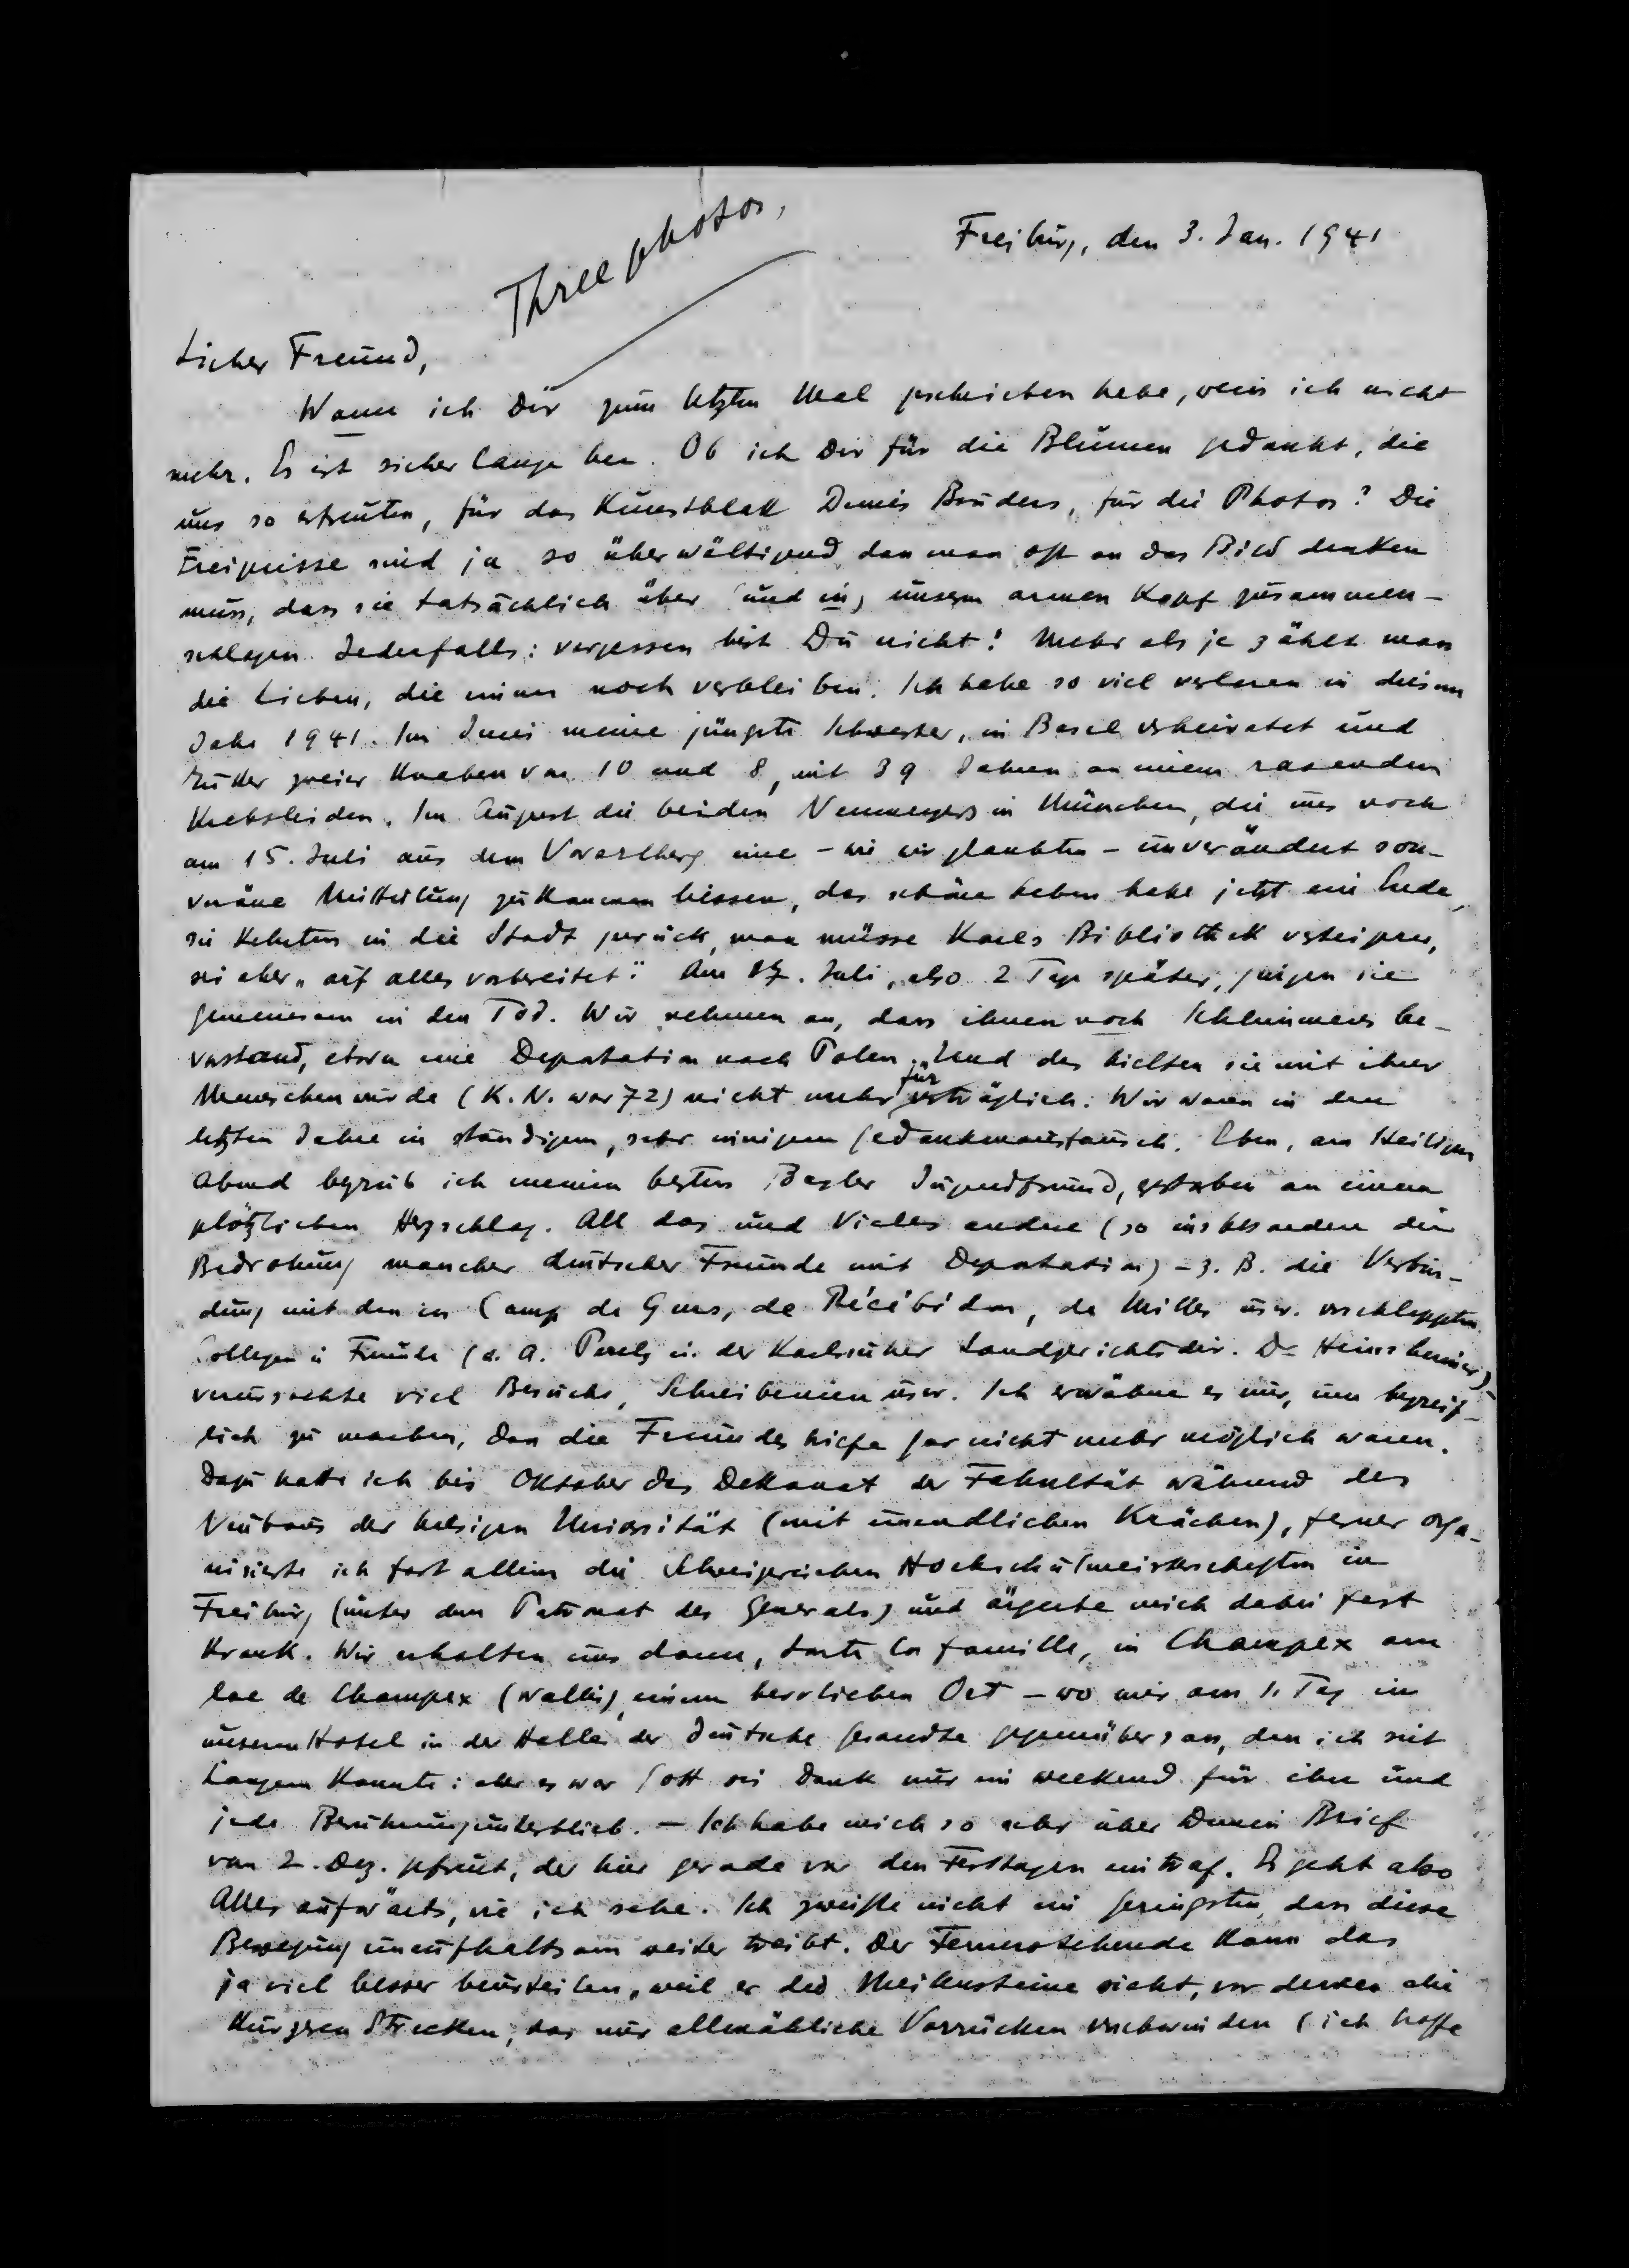 Three photos,
Freiburg, den 3. Jan. 1941
Lieber Freund,
Wann ich Dir zum letzten Mal geschrieben habe, weiss ich nicht
mehr. Es ist sicher lange her. Ob ich Dir für die Blumen gedankt, die
uns so erfreuten, für das Kunstblatt Deines Bruders, für die Photos? Die
Ereignisse sind ja so überwältigend dass man oft an das Bild denken
muss, dass sie tatsächlich über (und in) unserm armen Kopf zusammen-
schlagen. Jedenfalls: vergessen bist Du nicht! Mehr als je zählt man
die Lieben, die einem noch verbleiben. Ich habe so viel verloren in diesem
Jahr 1941. Im Juni meine jüngste Schwester, in Basel verheiratet und
Mutter zweier Knaben von 10 und 8, mit 39 Jahren an einem rasenden
Krebsleiden. Im August die beiden Neumeyers in München, die uns noch
am 15. Juli aus dem Vorarlberg eine – wie wir glaubten – unverändert sou-
veräne Mitteilung zukommen liessen, das schöne Leben habe jetzt ein Ende,
sie kehrten in die Stadt zurück, man müsse Karls Bibliothek versteigern,
sei aber „auf alles vorbereitet“. Am 17. Juli, also 2 Tage später, gingen sie
gemeinsam in den Tod. Wir nehmen an, dass ihnen noch Schlimmeres be-
vorstand, etwa eine Deportation nach Polen. Und das hielten sie mit ihrer
Menschenwürde (K. N. war 72) nicht mehr für verträglich. Wir waren in den
letzten Jahren in ständigem, sehr innigem Gedankenaustausch. Eben, am Heiligen
Abend begrub ich meinen besten Basler Jugendfreund, gestorben an einem
plötzlichen Herzschlag. All das und Vieles andere (so insbesondere die
Bedrohung mancher deutscher Freunde mit Deportation) – z. B. die Verbin-
dung mit den in Camp de Gurs, de Récébédou, de Milles usw. verschleppten
Collegen u. Freunde (u. A. Perels u. der Karlsruher Landgerichtsdir. Dr Heinsheimer) –
verursachte viel Besuche, Schreibereien usw. Ich erwähne es nur, um begreif-
lich zu machen, dass die Freundesbriefe gar nicht mehr möglich waren.
Dazu hatte ich bis Oktober das Dekanat der Fakultät während des
Neubaus der hiesigen Universität (mit unendlichen Krächen), ferner orga-
nisierte ich fast allein die Schweizerischen Hochschulmeisterschaften in
Freiburg (unter dem Patronat des Generals) und ärgerte mich dabei fast
krank. Wir erholten uns dann, toute la famille, in Champex am
lac de Champex (Wallis), einem herrlichen Ort – wo mir am 1. Tag in
unserem Hotel in der Halle der deutsche Gesandte gegenübersass, den ich seit
Langem kannte: aber es war Gott sei Dank nur ein weekend für ihn und
jede Berührung unterblieb. – Ich habe mich so sehr über Deinen Brief
vom 2. Dez. gefreut, der hier gerade vor den Festtagen eintraf. Es geht also
Alles aufwärts, wie ich sehe. Ich zweifle nicht im Geringsten, dass diese
Bewegung unaufhaltsam weiter treibt. Der Fernerstehende kann das
ja viel besser beurteilen, weil er die Meilensteine sieht, vor denen die
kürzeren Strecken, das nur allmähliche Vorrücken verschwinden (ich hoffe